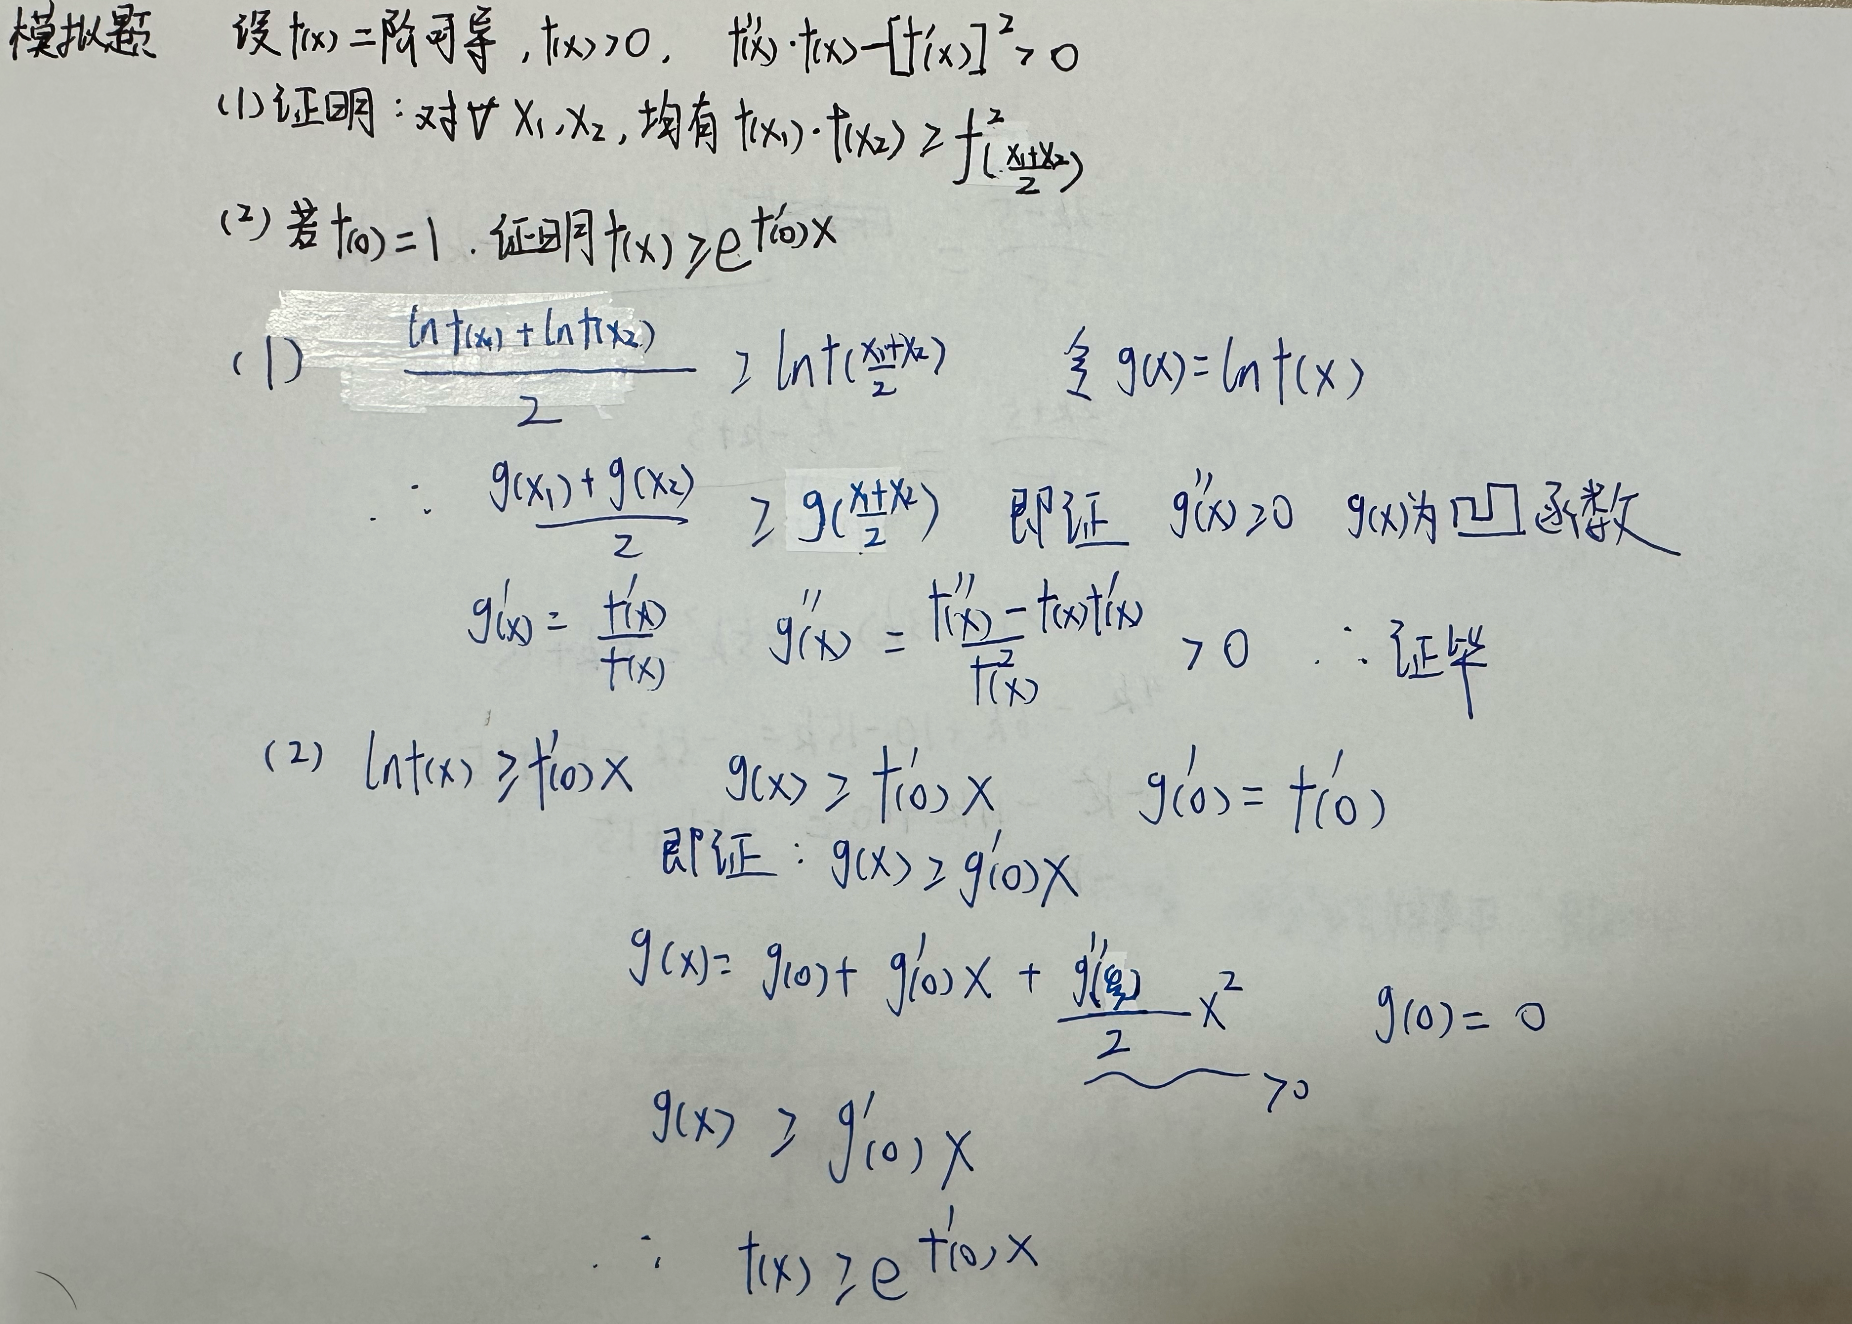 模拟题 设f(x)二阶可导,f(x)>0, f''(x)·f(x)-[f'(x)]²>0
(1)证明:对∀ x₁,x₂,均有f(x₁)·f(x₂)≥f²((x₁+x₂)/2)
(2)若f(0)=1.证明f(x)≥e^{f'(0)x}
(1) (ln f(x₁)+ln f(x₂))/2 ≥ ln f((x₁+x₂)/2) 令 g(x)=ln f(x)
∴ (g(x₁)+g(x₂))/2 ≥ g((x₁+x₂)/2) 即证 g''(x)≥0 g(x)为凹函数
g'(x)=f'(x)/f(x) g''(x)=(f''(x)-f(x)f'(x))/f²(x) >0 ∴证毕
(2) ln f(x)≥f'(0)x g(x)≥f'(0)x g'(0)=f'(0)
即证:g(x)≥g'(0)x
g(x)=g(0)+g'(0)x+(g''(ξ)/2)x² g(0)=0
>0
g(x)≥g'(0)x
∴ f(x)≥e^{f'(0)x}